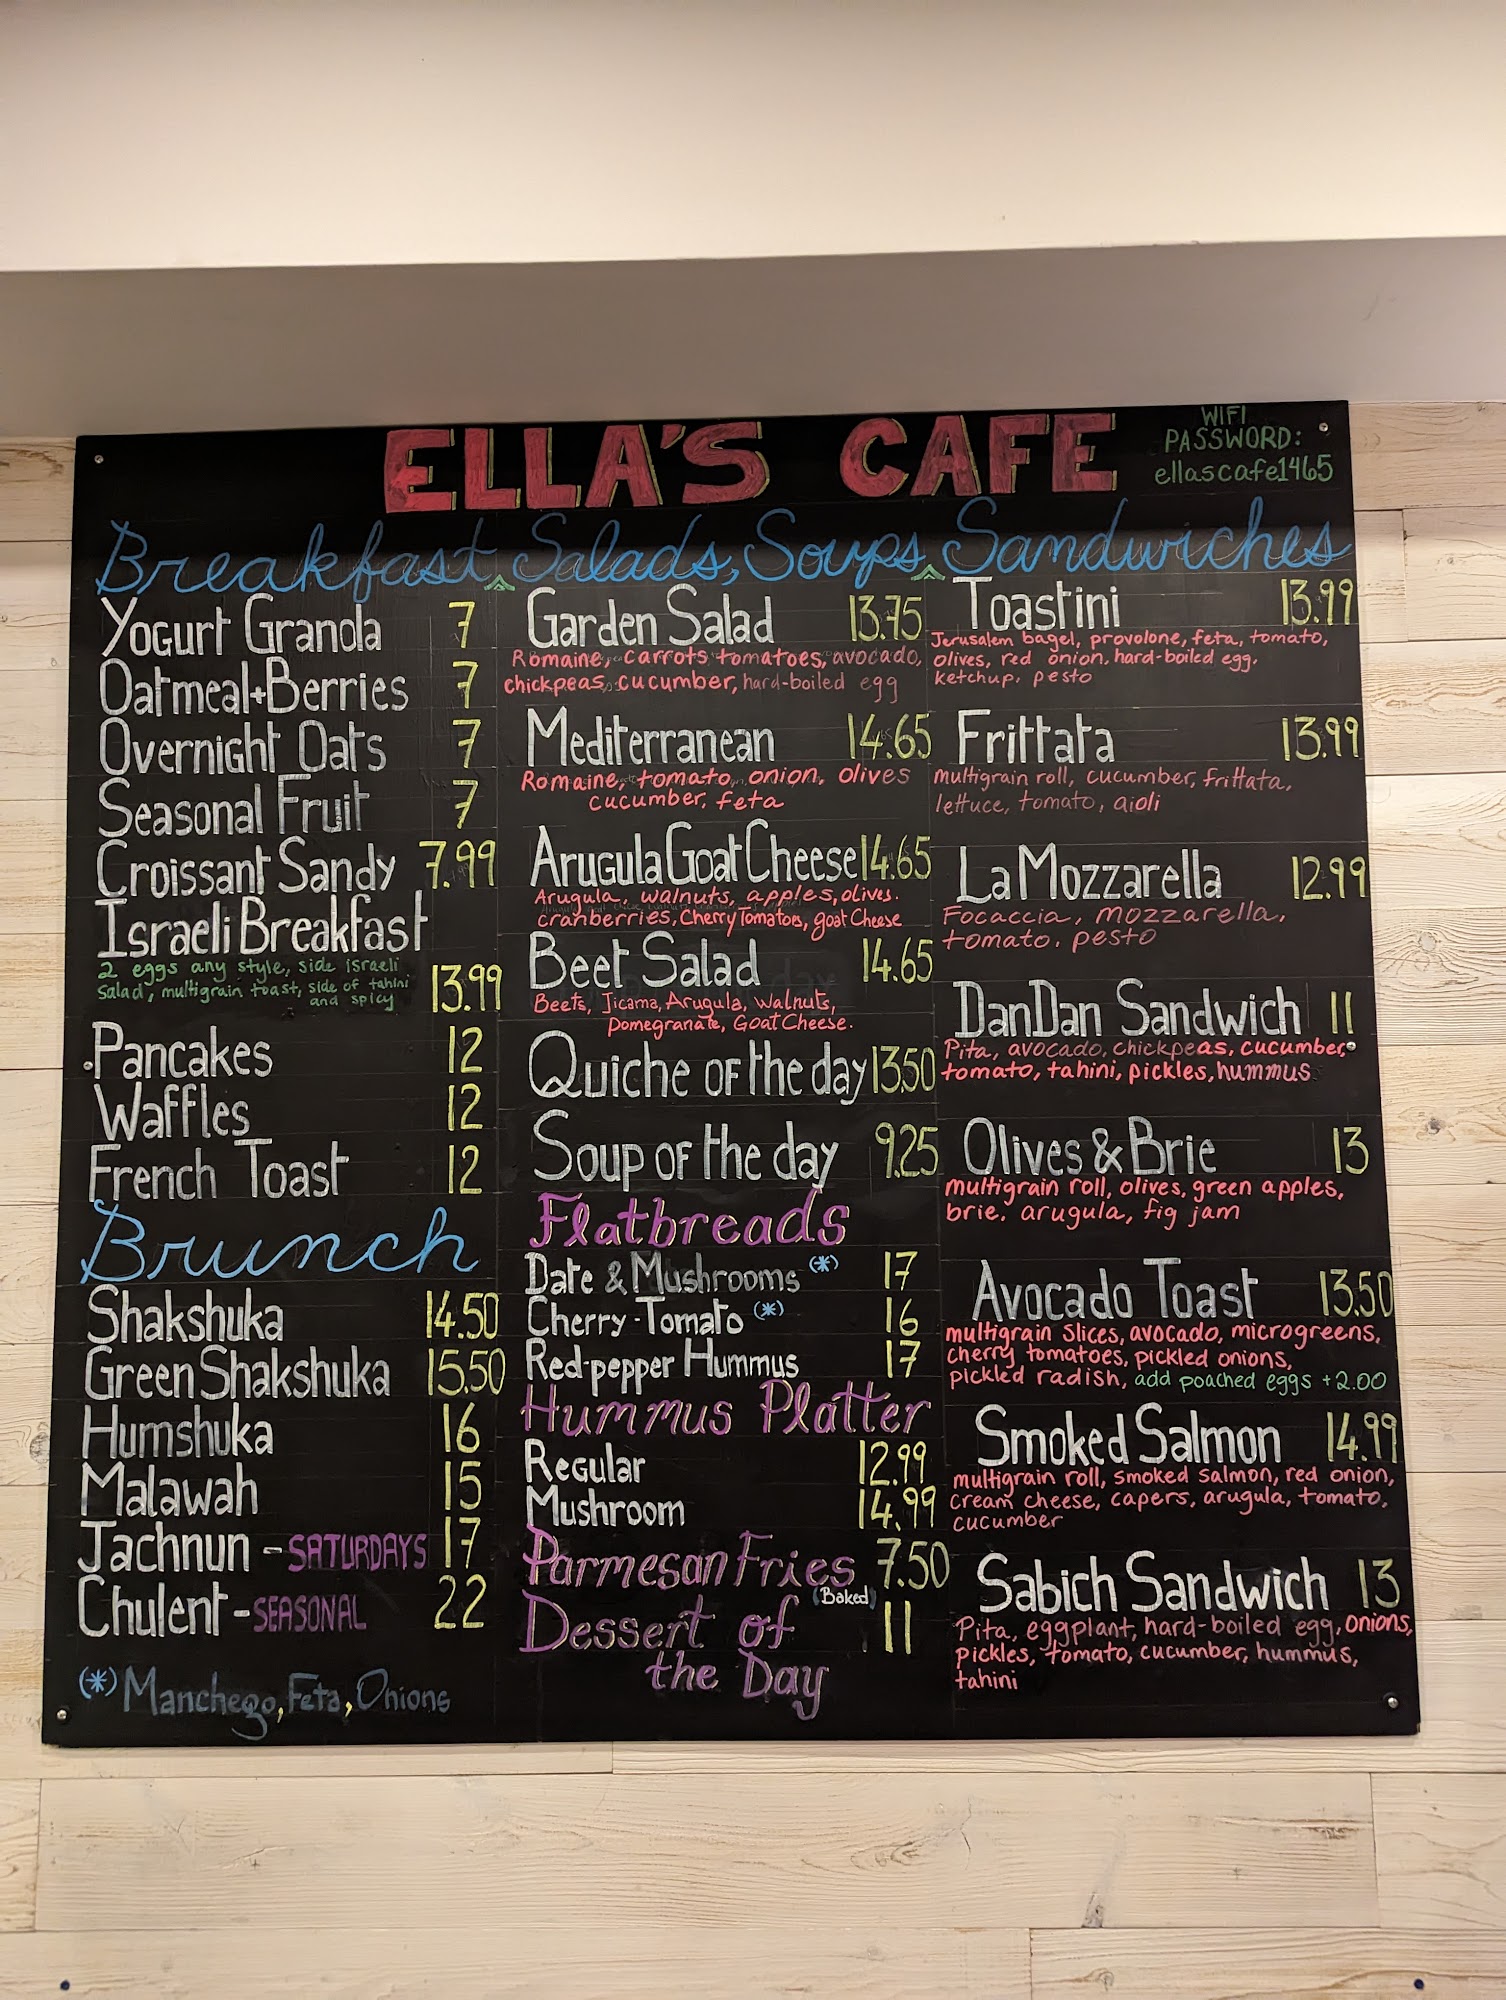 ELLA'S CAFE
WIFI
PASSWORD:
ellascafe1465
Breakfast, Salads, Soups, Sandwiches
Yogurt Granola 7
Oatmeal+Berries 7
Overnight Oats 7
Seasonal Fruit 7
Croissant Sandy 7.99
Israeli Breakfast
2 eggs any style, side israeli
Salad, multigrain toast, side of tahini
and spicy 13.99
Pancakes 12
Waffles 12
French Toast 12
Brunch
Shakshuka 14.50
Green Shakshuka 15.50
Humshuka 16
Malawah 15
Jachnun - SATURDAYS 17
Chulent - SEASONAL 22
(*) Manchego, Feta, Onions
Garden Salad 13.75
Romaine, carrots tomatoes, avocado,
chickpeas, cucumber, hard-boiled egg
Mediterranean 14.65
Romaine, tomato, onion, olives
cucumber, feta
Arugula Goat Cheese 14.65
Arugula, walnuts, apples, olives.
cranberries, Cherry Tomatoes, goat Cheese
Beet Salad 14.65
Beets, Jicama, Arugula, walnuts,
pomegranate, Goat Cheese.
Quiche of the day 13.50
Soup of the day 9.25
Flatbreads
Date & Mushrooms (*) 17
Cherry-Tomato (*) 16
Red-pepper Hummus 17
Hummus Platter
Regular 12.99
Mushroom 14.99
Parmesan Fries 7.50
(Baked)
Dessert of 11
the Day
Toastini 13.99
Jerusalem bagel, provolone, feta, tomato,
olives, red onion, hard-boiled egg,
ketchup, pesto
Frittata 13.99
multigrain roll, cucumber, frittata,
lettuce, tomato, aioli
La Mozzarella 12.99
Focaccia, mozzarella,
tomato, pesto
DanDan Sandwich 11
Pita, avocado, chickpeas, cucumber,
tomato, tahini, pickles, hummus
Olives & Brie 13
multigrain roll, olives, green apples,
brie, arugula, fig jam
Avocado Toast 13.50
multigrain slices, avocado, microgreens,
cherry tomatoes, pickled onions,
pickled radish, add poached eggs +2.00
Smoked Salmon 14.99
multigrain roll, smoked salmon, red onion,
cream cheese, capers, arugula, tomato,
cucumber
Sabich Sandwich 13
Pita, eggplant, hard-boiled egg, onions,
pickles, tomato, cucumber, hummus,
tahini